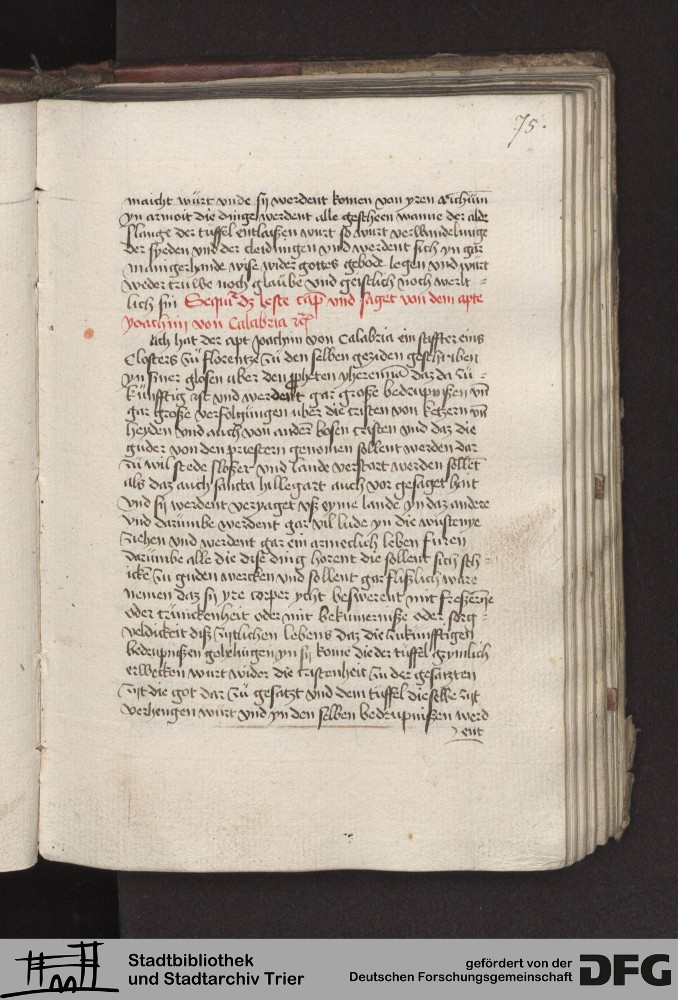 75.
maicht würt vnde sij werdent komen von yren richtüm
yn armoit die dinge werdent alle gescheen wanne der alde
slange der tüffel entlaißen würt so würt verwandelunge
der syeden vnd der cleidungen vnd werdent sich yn gar
manigerhande wise wider gottes gebode legen vnd würt
weder truwe noch glaübe vnd geistlich noch werlt=
lich sin Sequitur dz leste cap vnd saget von dem apte
yoachim von Calabria
Ach hat der apt Joachym von Calabria ein stiffter eins
Closters zü florentze zü den selben geziden geschriben
yn syner glosen uber den propheten yheremia daz da zü=
künfftig ist vnd werdent gar große bedrupnißen vnd
gar große verfolgüngen uber die cristen von ketzern vnd
heyden vnd auch von andern bosen cristen vnd daz die
guder von den priestern genomen sollent werden dar
zü wil stede sloßer vnd lande verstart werden sollent
als daz auch sancta hillegart auch vor gesaget hait
vnd sij werdent veryaget vß eyme lande yn daz andere
vnd darümbe werdent gar vil lude yn die wüstenye
ziehen vnd werdent gar ein armeclich leben furen
darümbe alle die dise ding horent die sollent sich sch=
icken zu guden wercken vnd sollent gar flißlich ware
nemen daz sij yre corper ycht beswerent mit freßerye
oder trünckenheit oder mit bekümerniße oder sorg=
veldickeit diß zijtlichen lebens daz die zukunfftigen
bedrupnißen gehelingen yn sij kome die der tüffel grymlich
erwecken würt wider die cristenheit zü der gesatzten
zijt die got dar zü gesatzt vnd dem tüffel dieselbe zijt
verhengen würt vnd yn den selben bedrupnißen werd
ent
Stadtbibliothek
und Stadtarchiv Trier
gefördert von der
Deutschen Forschungsgemeinschaft
DFG